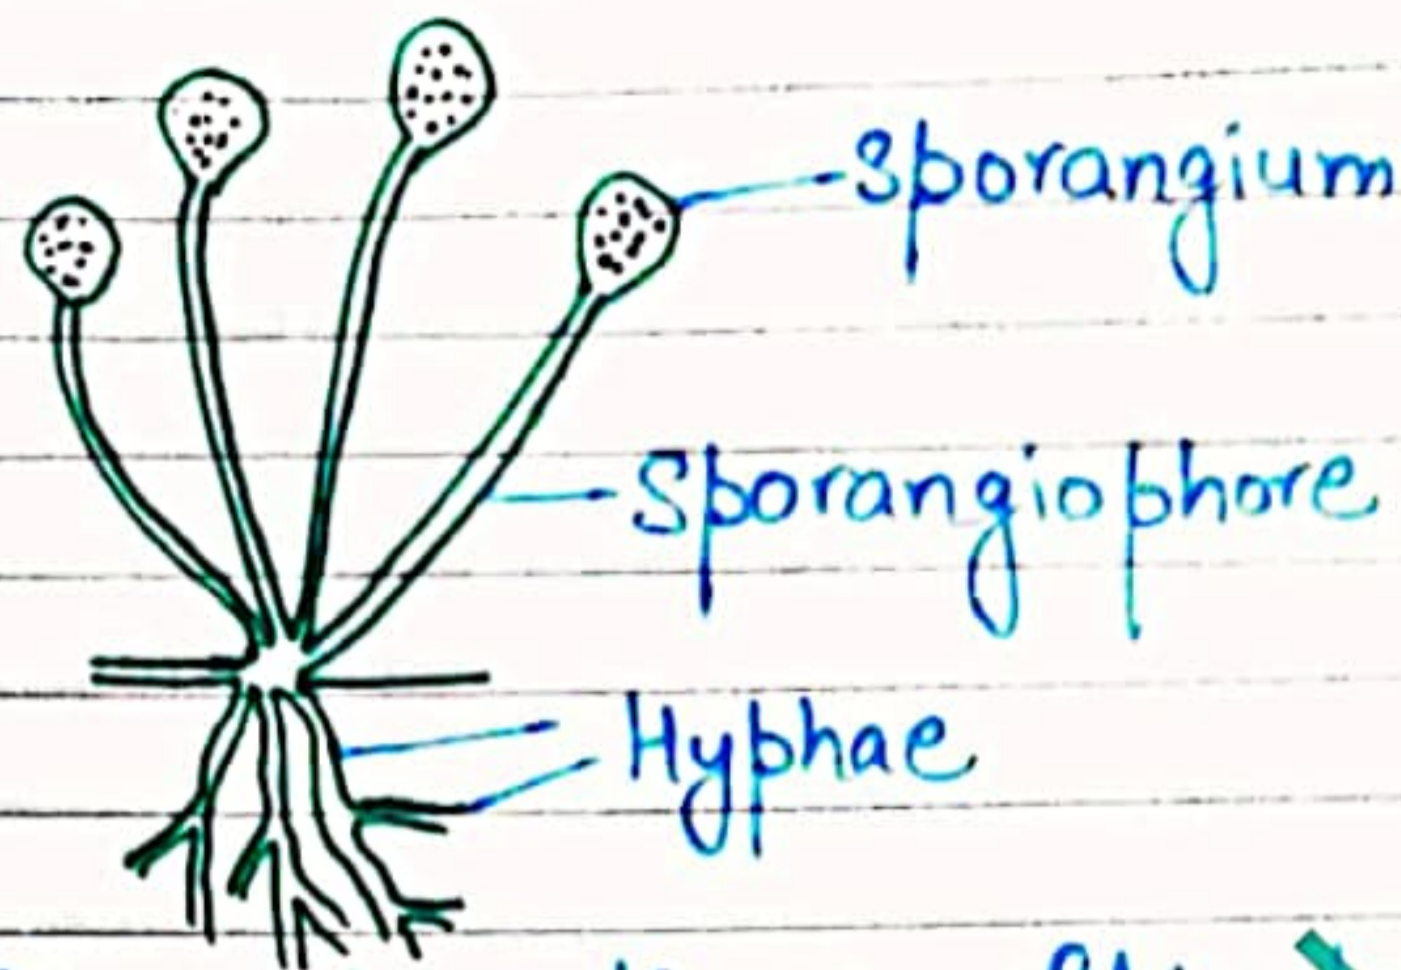 Sporangium
Sporangiophore
Hyphae